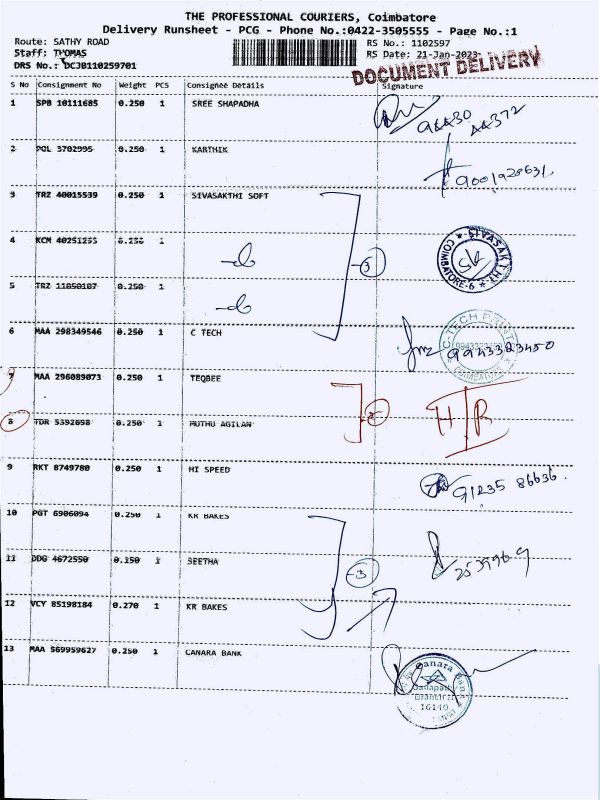 THE PROFESSIONAL COURIERS, Coimbatore
Delivery Runsheet - PCG - Phone No.:0422-3505555 - Page No.:1
Route: SATHY ROAD
RS No.: 1102597
Staff: THOMAS
RS Date: 21-Jan-2023
DRS No.: DCJB110259701
DOCUMENT DELIVERY
S No Consignment No Weight PCS Consignee Details Signature
1 SPB 10111685 0.250 1 SREE SHAPADHA
2 POL 3702995 0.250 1 KARTHIK
9001928631
3 TRZ 40015539 0.250 1 SIVASAKTHI SOFT
4 KCM 40251255 0.250 1
3
SIVASAKTHY
COIMBATORE-6
5 TRZ 11050107 0.250 1
6 MAA 298349546 0.250 1 C TECH
9943383450
7 MAA 296089073 0.250 1 TEQBEE
8 TDR 5392698 0.250 1 MUTHU AGILAN
2
H/R
9 RKT 8749780 0.250 1 HI SPEED
91235 86636.
10 PGT 6906094 0.250 1 KR BAKES
11 DDG 4672550 0.150 1 SEETHA
3
2539969
12 VCY 85198184 0.270 1 KR BAKES
13 MAA 569959627 0.250 1 CANARA BANK
Canara Bank
Ganapathy
Branch II
16140